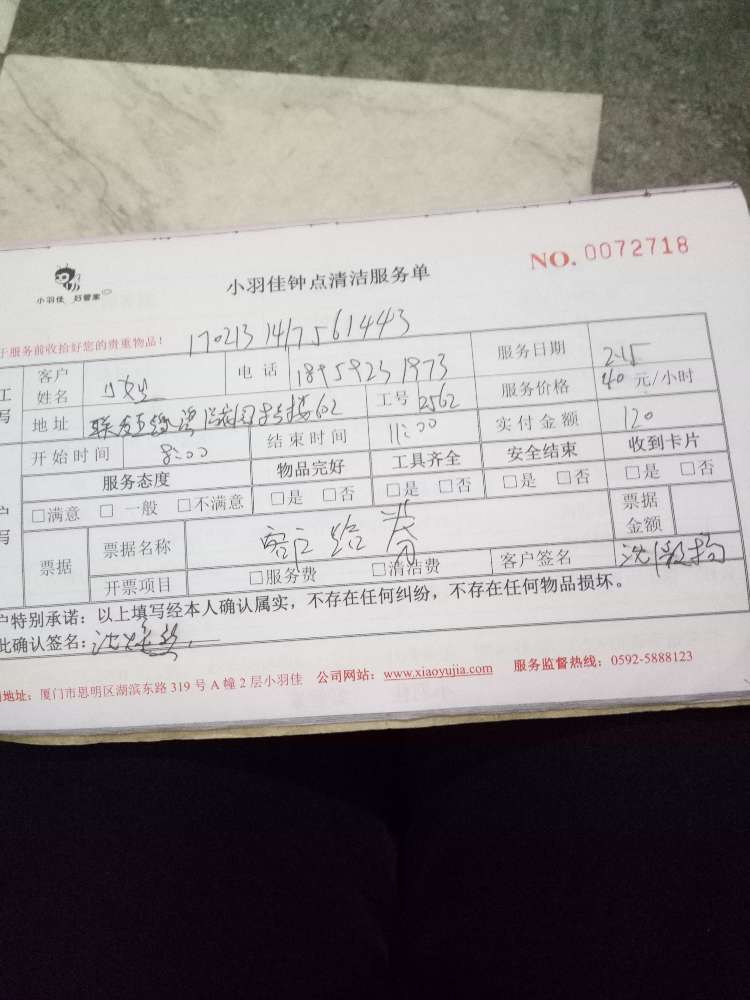 小羽佳 好管家
小羽佳钟点清洁服务单
NO. 0072718
于服务前收拾好您的贵重物品！
170213 1417561443
工
写
客户
姓名
电 话 18959231973
服务日期 2.15
地址
工号 2562
服务价格 40 元/小时
开始时间 8:00
结束时间 11:00
实付金额 120
服务态度
物品完好
工具齐全
安全结束
收到卡片
□满意 □ 一般 □不满意
□是 □否
□是 □否
□是 □否
□是 □否
户
写
票据
票据名称
票据
金额
开票项目
□服务费 □清洁费
客户签名
户特别承诺：以上填写经本人确认属实，不存在任何纠纷，不存在任何物品损坏。
此确认签名：
地址：厦门市思明区湖滨东路 319 号 A 幢 2 层小羽佳 公司网站：www.xiaoyujia.com 服务监督热线：0592-5888123